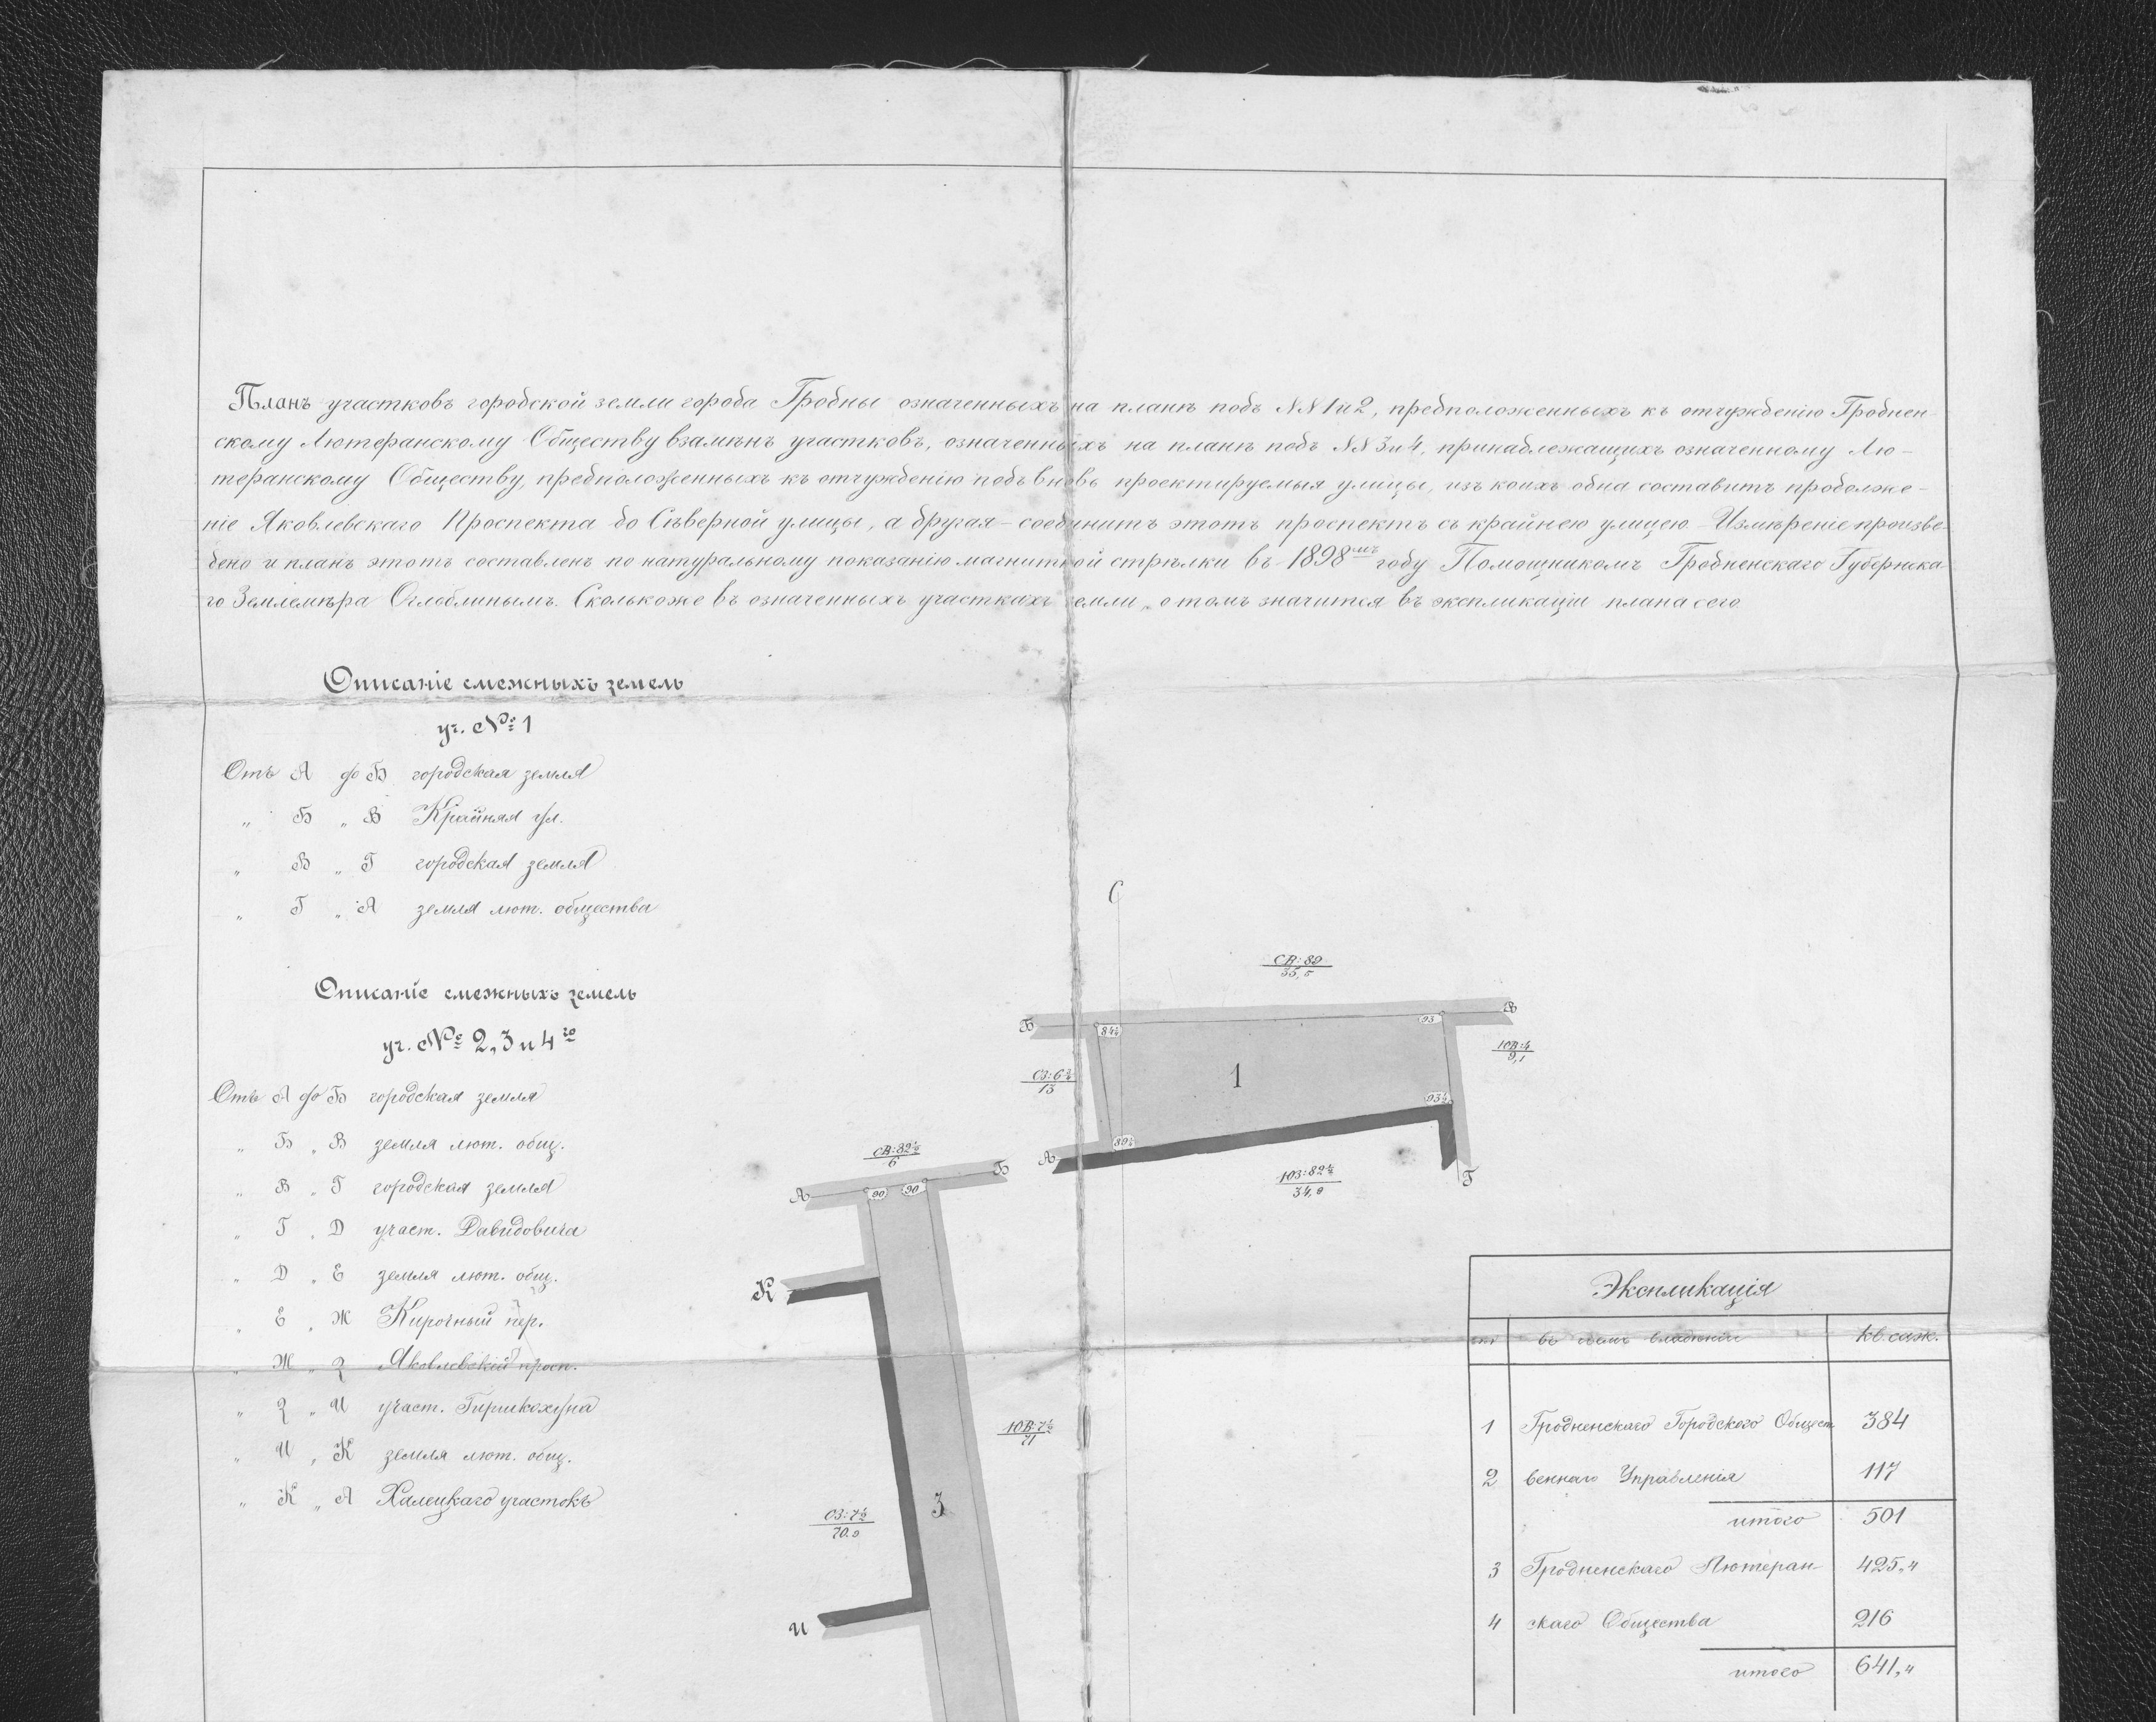 Планъ участковъ городской земли города Гродны означенныхъ на планѣ подъ NN 1 и 2, предположенныхъ къ отчужденію Гроднен-
скому Лютеранскому Обществу взамѣнъ участковъ, означенныхъ на планѣ подъ NN 3 и 4, принадлежащихъ означенному Лю-
теранскому Обществу, предположенныхъ къ отчужденію подъ вновь проектируемыя улицы, изъ коихъ одна составитъ продолже-
ніе Яковлевскаго Проспекта до Сѣверной улицы, а другая - соединитъ этотъ проспектъ съ крайнею улицею. Измѣреніе произве-
дено и планъ этотъ составленъ по натуральному показанію магнитной стрѣлки въ 1898мъ году Помощникомъ Гродненскаго Губернска-
го Землемѣра Оглоблинымъ. Сколько же въ означенныхъ участкахъ земли, о томъ значится въ экспликаціи плана сего.
Описаніе смежныхъ земель
уч. № 1
Отъ А до Б городская земля
„ Б „ В Крайняя ул.
„ В „ Г городская земля
„ Г „ А земля лют. общества
Описаніе смежныхъ земель
уч. № 2, 3 и 4го
Отъ А до Б городская земля
„ Б „ В земля лют. общ.
„ В „ Г городская земля
„ Г „ Д участ. Давидовича
„ Д „ Е земля лют. общ.
„ Е „ Ж Кирочный пер.
„ Ж „ З Яковлевскій просп.
„ З „ И участ. Гиршкохуна
„ И „ К земля лют. общ.
„ К „ А Халецкаго участокъ
С
СВ: 89
35,5
Б
В
84½
93
ЮВ: 4
9,1
СЗ: 6¾
13
1
93½
89½
А
Г
ЮЗ: 82½
34,9
СВ: 82½
6
А
Б
90
90
К
ЮВ: 7½
71
СЗ: 7½
70.9
3
И
Экспликація
въ чьемъ владѣніи
Кв. саж.
1 Гродненскаго Городского Общест 384
2 веннаго Управленія 117
итого 501
3 Гродненскаго Лютеран- 425,4
4 скаго Общества 216
итого 641,4